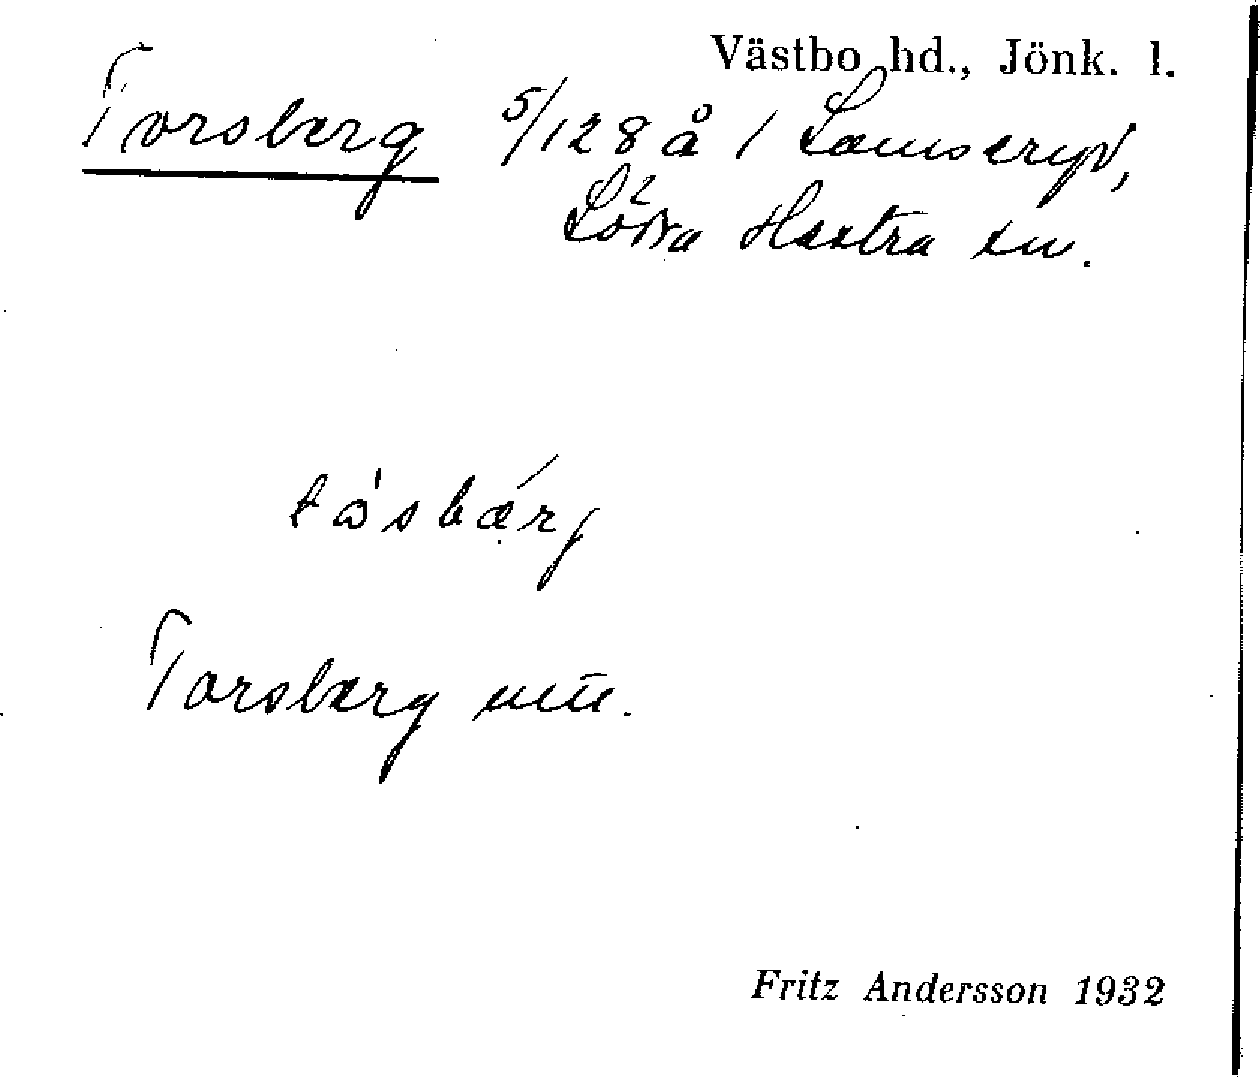 Västbo hd., Jönk. l.
Torsberg 5/128 å 1 Lamseryd,
Södra Hestra sn.
tåsbärj
Torsberg utt.
Fritz Andersson 1932